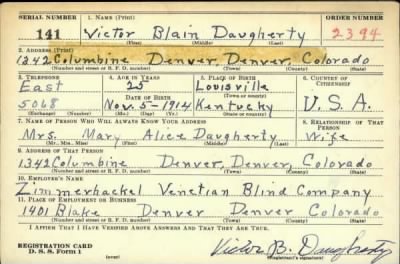 SERIAL NUMBER 1. NAME (Print) ORDER NUMBER
141 Victor Blain Daugherty 2394
(First) (Middle) (Last)
2. ADDRESS (Print)
1342 Columbine Denver, Denver, Colorado
(Number and street or R. F. D. number) (Town) (County) (State)
3. TELEPHONE 4. AGE IN YEARS 5. PLACE OF BIRTH 6. COUNTRY OF CITIZENSHIP
East 25 Louisville
DATE OF BIRTH (Town or county)
5068 Nov. 5-1914 Kentucky U.S.A.
(Exchange) (Number) (Mo.) (Day) (Yr.) (State or country)
7. NAME OF PERSON WHO WILL ALWAYS KNOW YOUR ADDRESS 8. RELATIONSHIP OF THAT PERSON
Mrs. Mary Alice Daugherty Wife
(Mr., Mrs., Miss) (First) (Middle) (Last)
9. ADDRESS OF THAT PERSON
1342 Columbine Denver, Denver, Colorado
(Number and street or R. F. D. number) (Town) (County) (State)
10. EMPLOYER'S NAME
Zimmerhackel Venetian Blind Company
11. PLACE OF EMPLOYMENT OR BUSINESS
1401 Blake Denver Denver Colorado
(Number and street or R. F. D. number) (Town) (County) (State)
I AFFIRM THAT I HAVE VERIFIED ABOVE ANSWERS AND THAT THEY ARE TRUE.
REGISTRATION CARD
D. S. S. Form 1 (over) Victor B. Daugherty
(Registrant's signature)